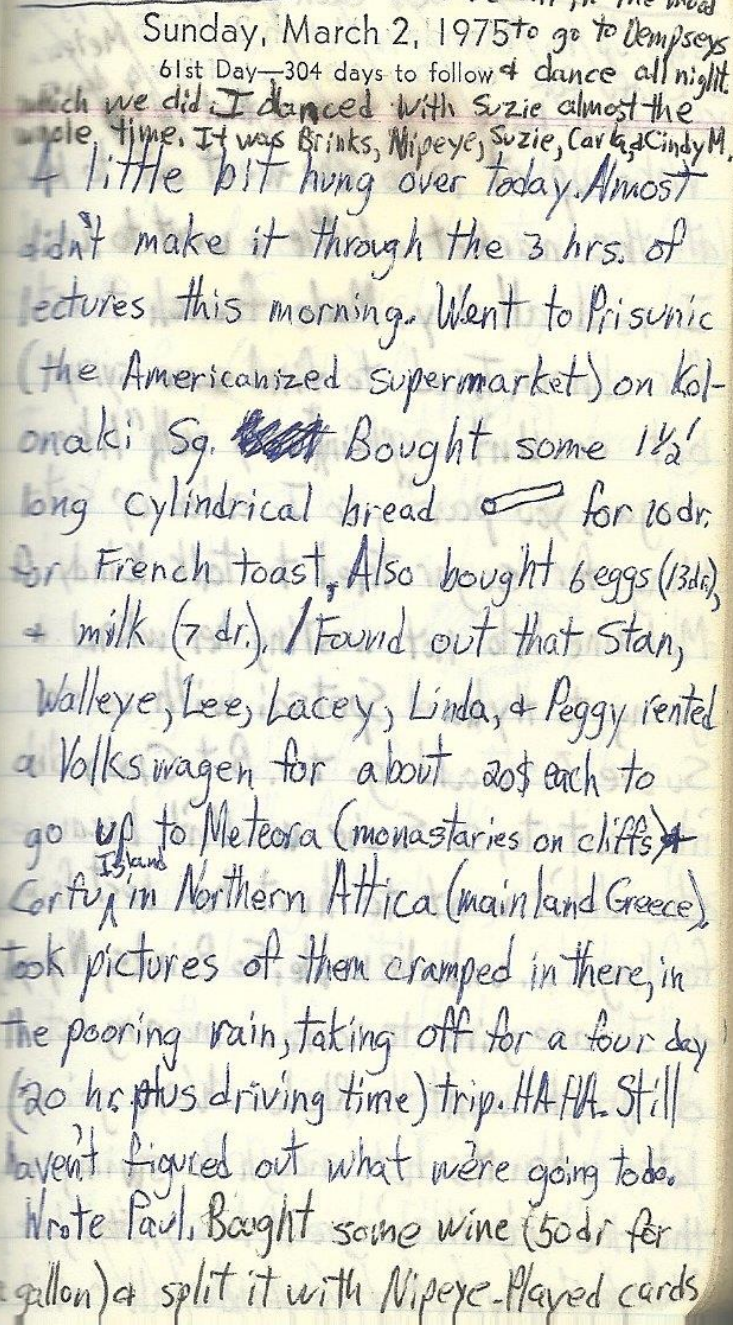 the mood
Sunday, March 2, 1975 to go to Dempseys
61st Day—304 days to follow & dance all night.
which we did. I danced with Suzie almost the
whole time. It was Brinks, Nipeye, Suzie, Carla, & Cindy M.
A little bit hung over today. Almost
didn't make it through the 3 hrs. of
lectures this morning. Went to Prisunic
(the Americanized supermarket) on Kol-
onaki Sq. Bought some 1½'
long cylindrical bread for 10 dr.
for French toast, Also bought 6 eggs (13dr.),
+ milk (7 dr.). / Found out that Stan,
Walleye, Lee, Lacey, Linda, & Peggy rented
a Volkswagen for about 20$ each to
go up to Meteora (monastaries on cliffs) +
Corfu Island in Northern Attica (mainland Greece).
Took pictures of them cramped in there, in
the pooring rain, taking off for a four day
(20 hr plus driving time) trip. HA HA. Still
haven't figured out what we're going to do.
Wrote Paul. Bought some wine (50 dr for
gallon) & split it with Nipeye. Played cards